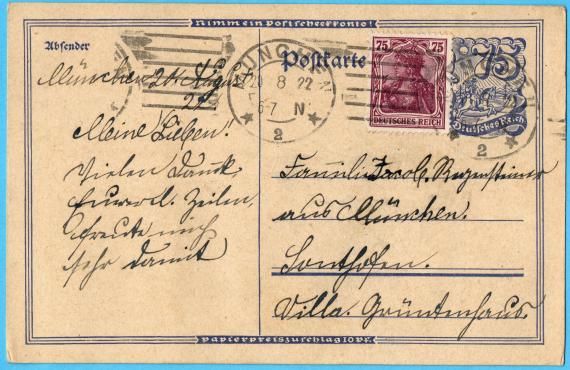 Nimm ein Postscheckkonto!
Absender
Postkarte
MÜNCHEN
20 8 22
6-7 N
2
75 75
DEUTSCHES REICH
75
Deutsches Reich
2
München 20. August
22.
Meine Lieben!
Vielen Dank
Eurer l. Zeilen,
freute mich
sehr damit
Familie Jacob Regensteiner
aus München.
Sonthofen.
Villa Grüntenhaus
Papierpreiszuschlag 10 Pf.